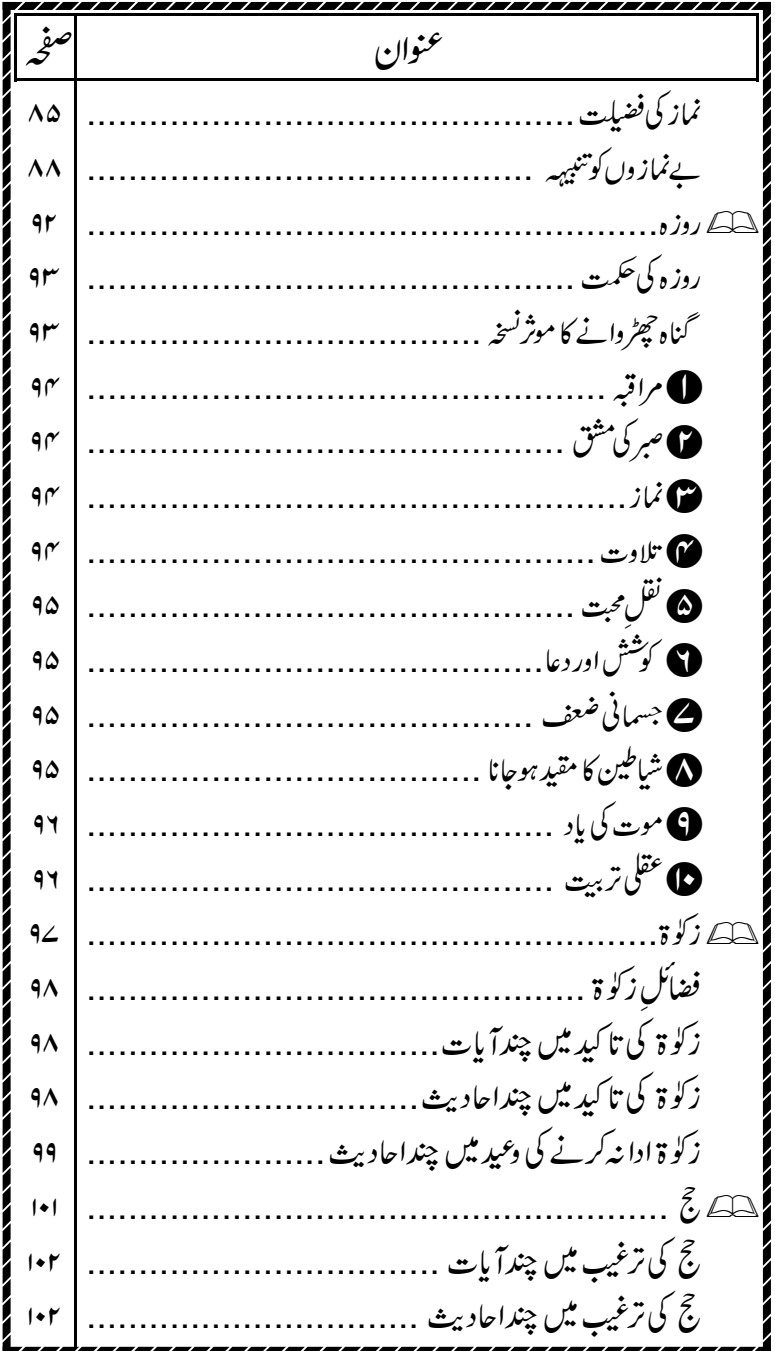 عنوان صفحہ
نماز کی فضیلت ............................................... ۸۵
بے نمازوں کو تنبیہہ ........................................... ۸۸
روزہ ....................................................... ۹۲
روزہ کی حکمت ............................................... ۹۳
گناہ چھڑوانے کا موثر نسخہ ...................................... ۹۳
۱ مراقبہ .................................................. ۹۴
۲ صبر کی مشق .............................................. ۹۴
۳ نماز .................................................... ۹۴
۴ تلاوت ................................................. ۹۴
۵ نقلِ محبت ............................................... ۹۵
۶ کوشش اور دعا ............................................ ۹۵
۷ جسمانی ضعف ........................................... ۹۵
۸ شیاطین کا مقید ہوجانا ...................................... ۹۵
۹ موت کی یاد ............................................. ۹۶
۱۰ عقلی تربیت ............................................. ۹۶
زکوٰۃ ....................................................... ۹۷
فضائلِ زکوٰۃ ................................................ ۹۸
زکوٰۃ کی تاکید میں چند آیات .................................. ۹۸
زکوٰۃ کی تاکید میں چند احادیث ................................ ۹۸
زکوٰۃ ادا نہ کرنے کی وعید میں چند احادیث ....................... ۹۹
حج ........................................................ ۱۰۱
حج کی ترغیب میں چند آیات .................................. ۱۰۲
حج کی ترغیب میں چند احادیث ................................ ۱۰۲